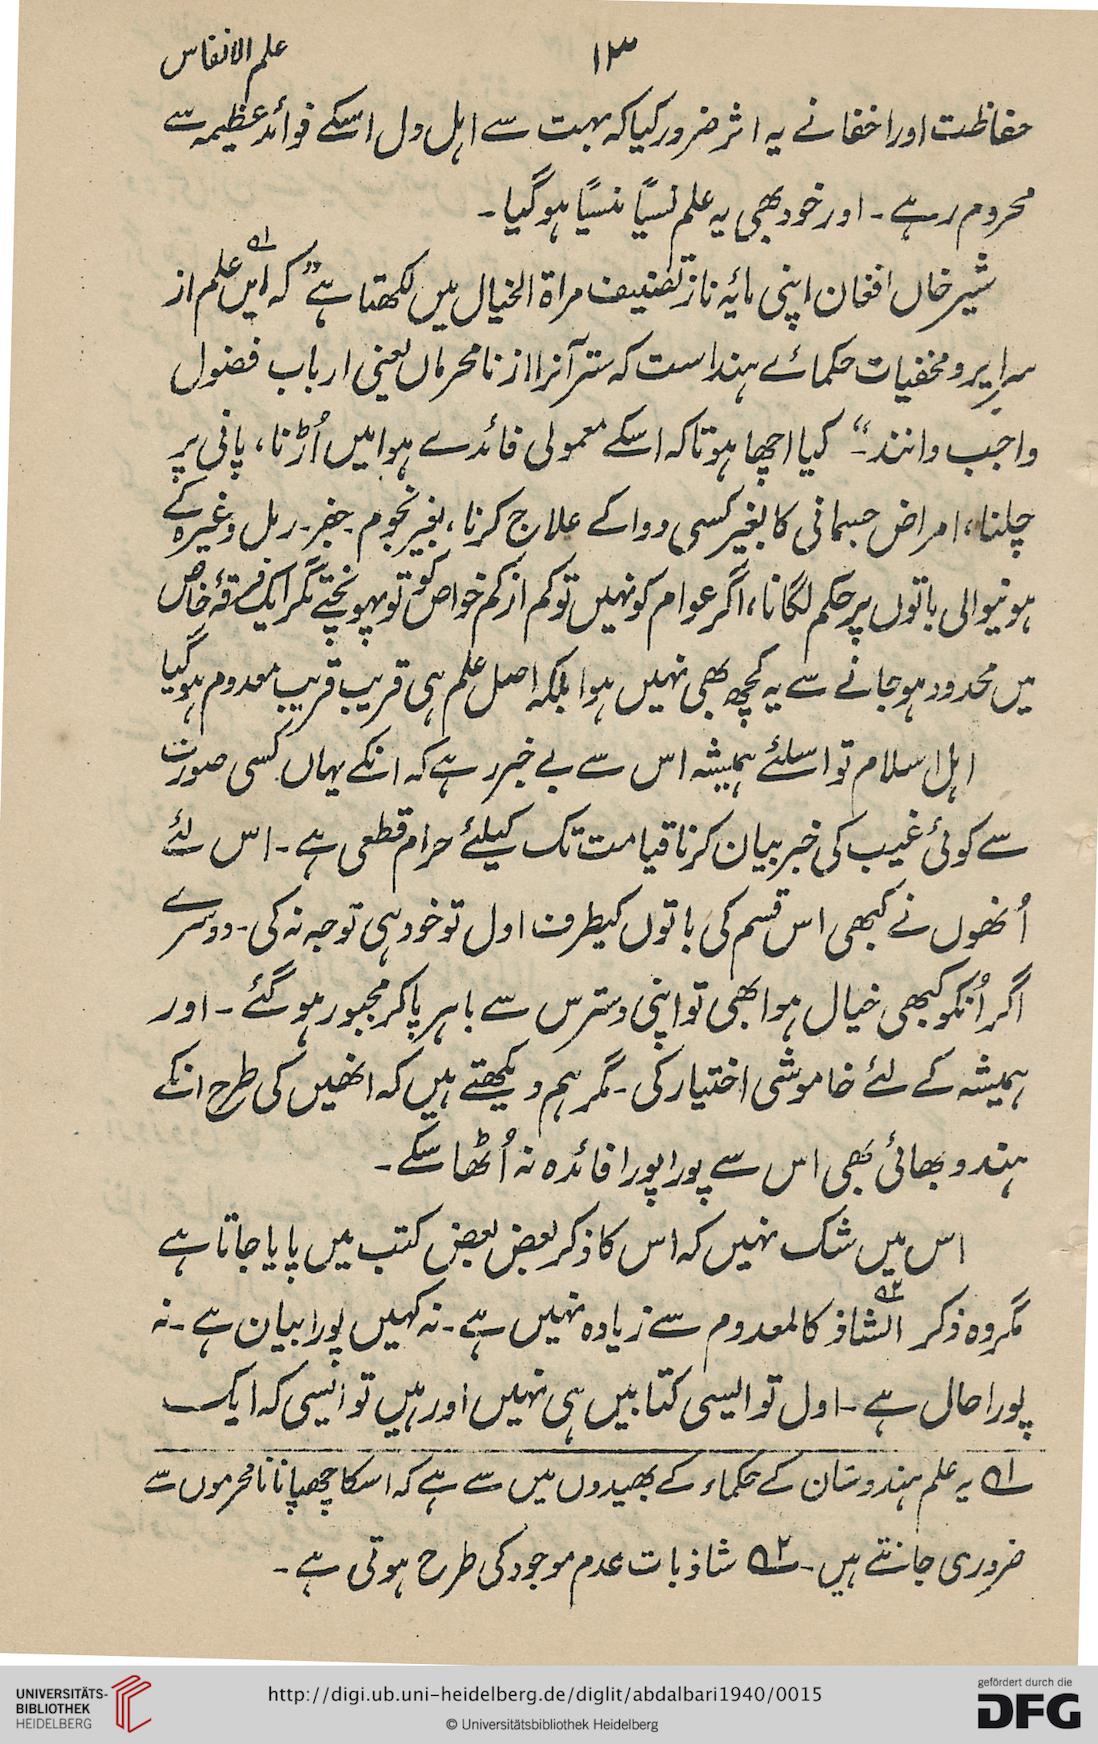 ۱۳
علم الانفاس
حفاظت اور اخفا نے یہ اثر ضرور کیا کہ بہت سے اہل دل اسکے فوائد عظیمہ سے
محروم رہے ۔ اور خود بھی یہ علم نسیًا منسیًا ہو گیا ۔
شیر خاں افغان اپنی مائیہ ناز تصنیف مراۃ الخیال میں لکھتا ہے” کہ ایں۱؎ علم از
سرایر و مخفیات حکمائے ہند است کہ ستر آنرا از نا محرماں یعنی ارباب فضول
واجب دانند“ ۔ کیا اچھا ہوتا کہ اسکے معمولی فائدے ہوا میں اُڑنا، پانی پر
چلنا، امراض جسمانی کا بغیر کسی دوا کے علاج کرنا، بغیر نجوم ۔ جفر ۔ رمل وغیرہ کے
ہونیوالی باتوں پر حکم لگانا، اگر عوام کو نہیں تو کم از کم خواص کو تو پہونچتے مگر ایک فرقۂ خاص
میں محدود ہو جانے سے یہ کچھ بھی نہیں ہوا بلکہ اصل علم ہی قریب قریب معدوم ہو گیا
اہل اسلام تو اسلئے ہمیشہ اس سے بے خبر رہے کہ انکے یہاں کسی صورت
سے کوئی غیب کی خبر بیان کرنا قیامت تک کیلئے حرام قطعی ہے ۔ اس لئے
اُنھوں نے کبھی اس قسم کی باتوں کیطرف اول تو خود ہی توجہ نہ کی ۔ دوسرے
اگر اُنکو کبھی خیال ہوا بھی تو اپنی دسترس سے باہر پا کر مجبور ہو گئے ۔ اور
ہمیشہ کے لئے خاموشی اختیار کی ۔ مگر ہم دیکھتے ہیں کہ انھیں کی طرح انکے
ہندو بھائی بھی اس سے پورا پورا فائدہ نہ اُٹھا سکے ۔
اس میں شک نہیں کہ اس کا ذکر بعض بعض کتب میں پایا جاتا ہے
مگر وہ ذکر الشاذ۲؎ کالمعدوم سے زیادہ نہیں ہے ۔ نہ کہیں پورا بیان ہے ۔ نہ
پورا حال ہے ۔ اول تو ایسی کتابیں ہی نہیں اور ہیں تو ایسی کہ ایک
۱؎ یہ علم ہندوستان کے حکماء کے بھیدوں میں سے ہے کہ اسکا چھپانا نامحرموں سے
ضروری جانتے ہیں ۔ ۲؎ شاذ بات عدم موجود کی طرح ہوتی ہے ۔
UNIVERSITÄTS-
BIBLIOTHEK
HEIDELBERG
http://digi.ub.uni-heidelberg.de/diglit/abdalbari1940/0015
© Universitätsbibliothek Heidelberg
gefördert durch die
DFG